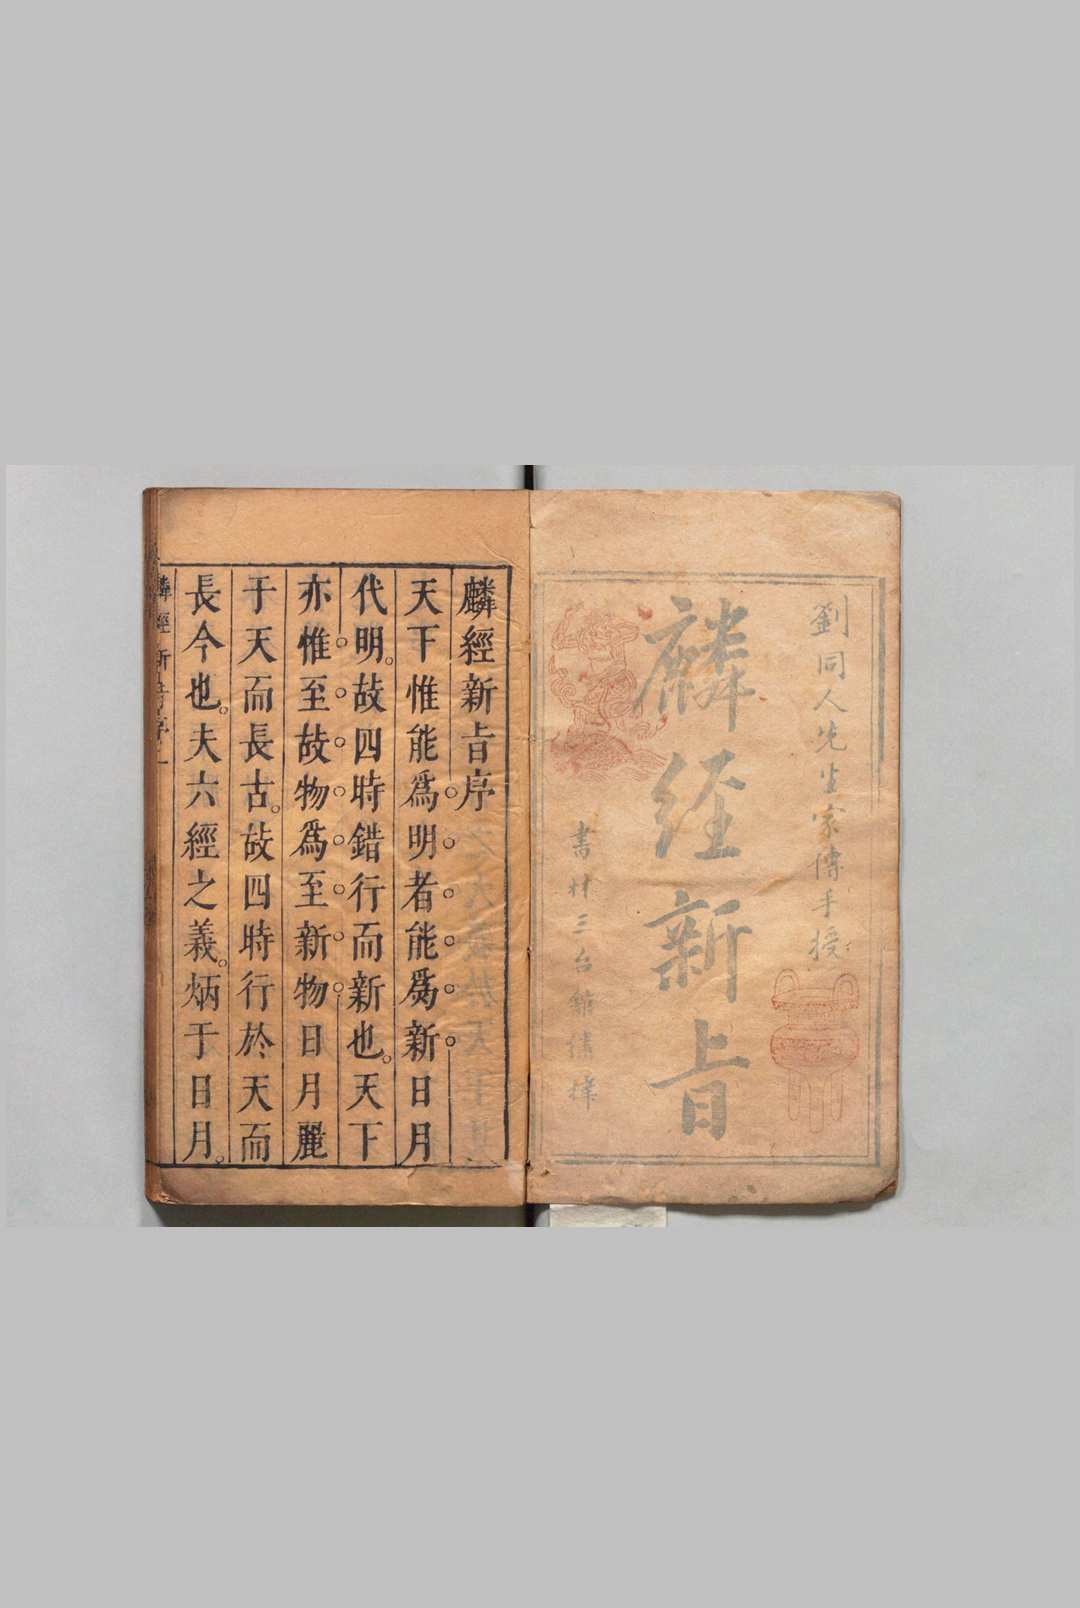 劉同人先生家傳手授
麟經新旨
書林三台館綉梓
麟經新旨序
天下惟能爲明者能爲新日月
代明。故四時錯行而新也。天下
亦惟至故物爲至新物日月麗
于天而長古。故四時行於天而
長今也。夫六經之義。炳于日月。
麟經新旨序